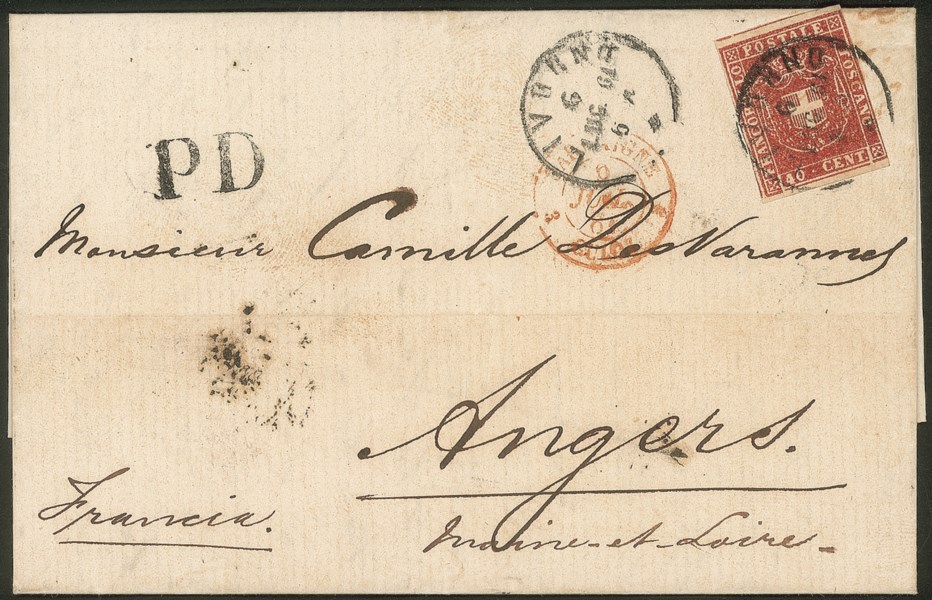 LIVORNO
FRANCOBOLLO POSTALE TOSCANO
40 CENT
PD
Monsieur Camille DesVarannes
Angers.
Francia.
Maine-et-Loire-